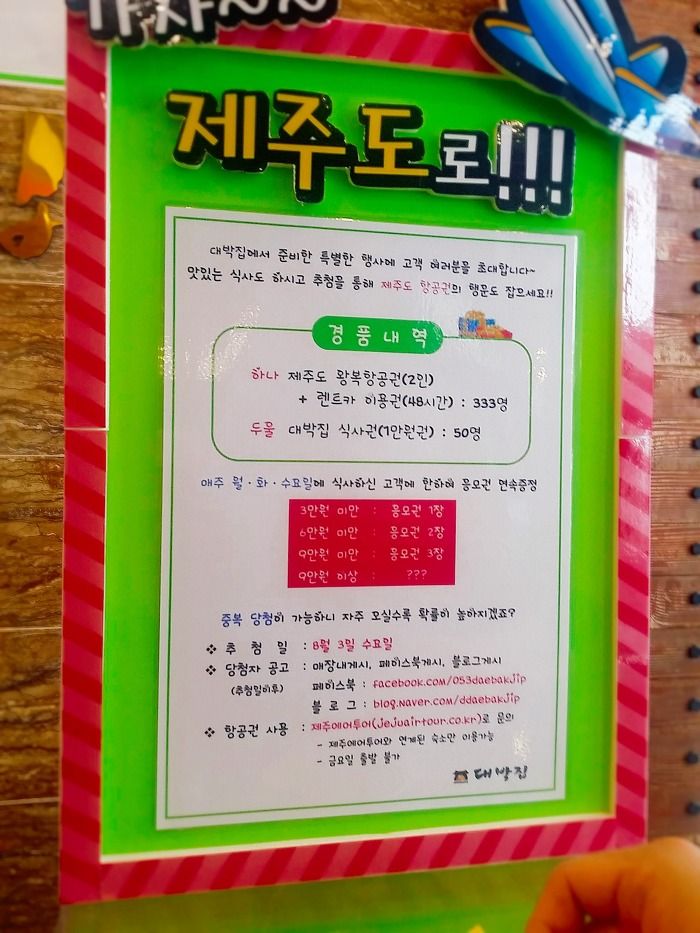 가자~~~
제주도로!!!
대박집에서 준비한 특별한 행사에 고객 여러분을 초대합니다~
맛있는 식사도 하시고 추첨을 통해 제주도 항공권의 행운도 잡으세요!!
경품내역
하나 제주도 왕복항공권(2인)
+ 렌트카 이용권(48시간) : 333명
두울 대박집 식사권(1만원권) : 50명
매주 월·화·수요일에 식사하신 고객에 한하여 응모권 연속증정
3만원 미만 : 응모권 1장
6만원 미만 : 응모권 2장
9만원 미만 : 응모권 3장
9만원 이상 : ???
중복 당첨이 가능하니 자주 오실수록 확률이 높아지겠죠?
❖ 추 첨 일 : 8월 3일 수요일
❖ 당첨자 공고 : 매장내게시, 페이스북게시, 블로그게시
(추첨일이후) 페이스북 : facebook.com/053daebakjip
블 로 그 : blog.naver.com/ddaebakjip
❖ 항공권 사용 : 제주에어투어(jejuairtour.co.kr)로 문의
- 제주에어투어와 연계된 숙소만 이용가능
- 금요일 출발 불가
대박집